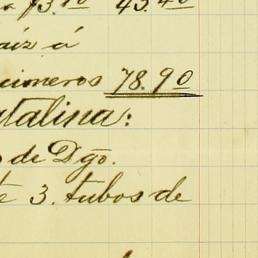 73.10 43.40
aiz á
cioneros 78.90
talina:
de Dgo.
3. tubos de